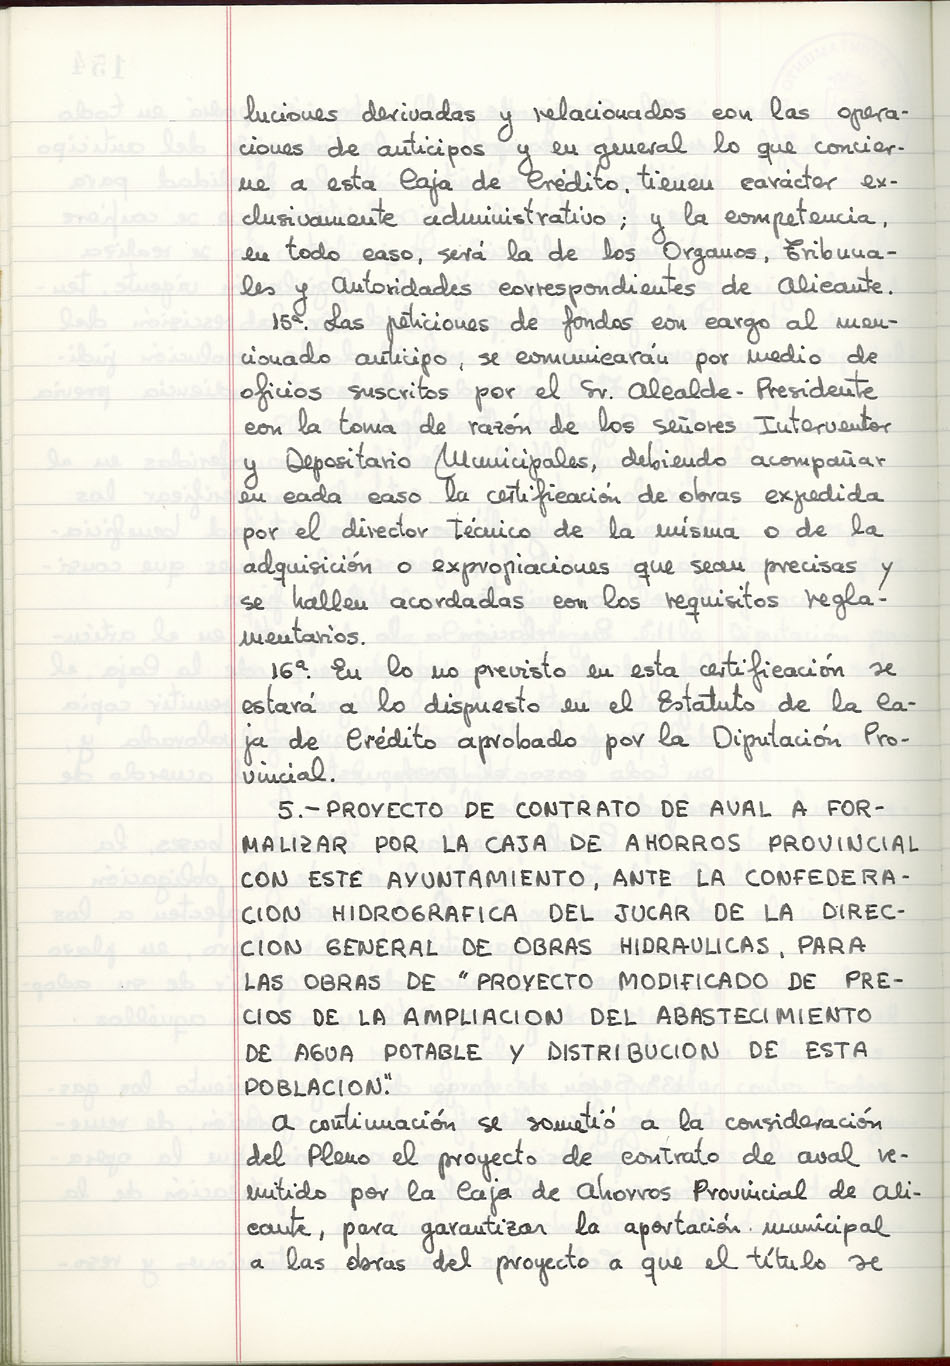 luciones derivadas y relacionados con las opera-
ciones de anticipos y en general lo que concier-
ne a esta Caja de Crédito, tienen carácter ex-
clusivamente administrativo; y la competencia,
en todo caso, será la de los Organos, Tribuna-
les y Autoridades correspondientes de Alicante.
15ª. Las peticiones de fondos con cargo al men-
cionado anticipo, se comunicarán por medio de
oficios suscritos por el Sr. Alcalde-Presidente
con la toma de razón de los señores Interventor
y Depositario Municipales, debiendo acompañar
en cada caso la certificación de obras expedida
por el director técnico de la misma o de la
adquisición o expropiaciones que sean precisas y
se hallen acordadas con los requisitos regla-
mentarios.
16ª. En lo no previsto en esta certificación se
estará a lo dispuesto en el Estatuto de la Ca-
ja de Crédito aprobado por la Diputación Pro-
vincial.
5.- PROYECTO DE CONTRATO DE AVAL A FOR-
MALIZAR POR LA CAJA DE AHORROS PROVINCIAL
CON ESTE AYUNTAMIENTO, ANTE LA CONFEDERA-
CION HIDROGRAFICA DEL JUCAR DE LA DIREC-
CION GENERAL DE OBRAS HIDRAULICAS, PARA
LAS OBRAS DE "PROYECTO MODIFICADO DE PRE-
CIOS DE LA AMPLIACION DEL ABASTECIMIENTO
DE AGUA POTABLE Y DISTRIBUCION DE ESTA
POBLACION".
A continuación se sometió a la consideración
del Pleno el proyecto de contrato de aval re-
mitido por la Caja de Ahorros Provincial de Ali-
cante, para garantizar la aportación municipal
a las obras del proyecto a que el título se